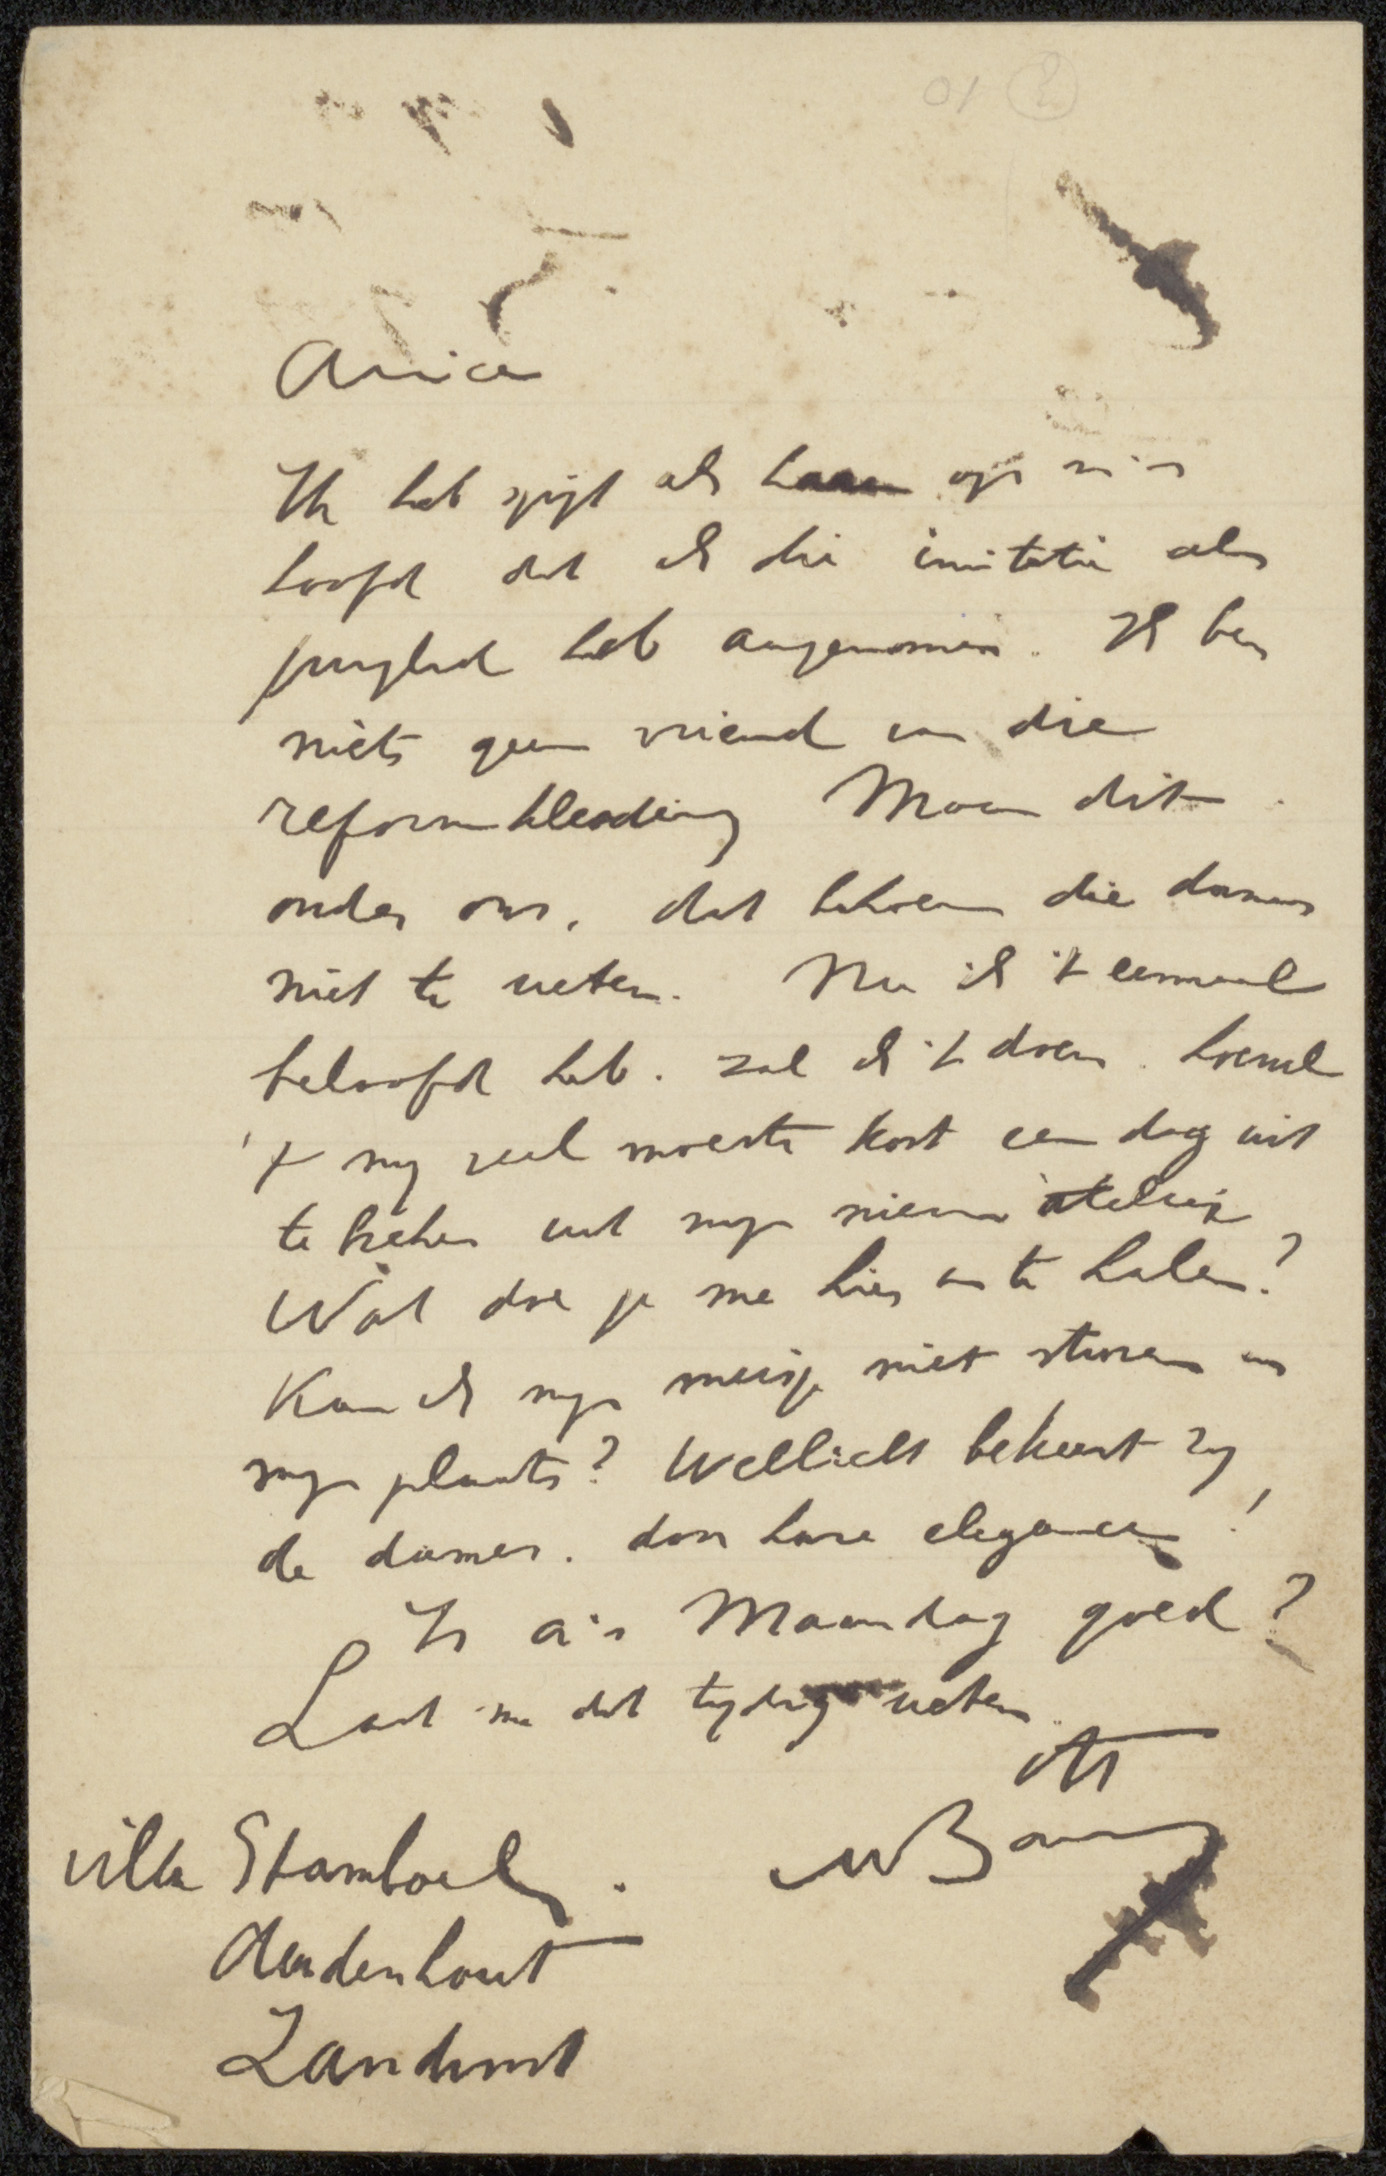 Amice
Ik heb spijt als haren op m'n
hoofd dat ik die invitatie als
jurylid heb aangenomen. Ik ben
niets geen vriend van die
reformkleeding Maar dit
onder ons, dat hoeven die dames
niet te weten. Nu ik 't eenmaal
beloofd heb. zal ik 't doen. hoewel
't my veel moeite kost een dag uit
te breken uit myn nieuw atelier
Wat doe je me hier an te halen?
Kan ik myn meisje niet sturen in
myn plaats? Wellicht bekeert zy
de dames. door hare elegance!
Is a.s Maandag goed?
Laat me dat tydig weten
tt
WB
villa Stamboel.
Aerdenhout
Zandvoort